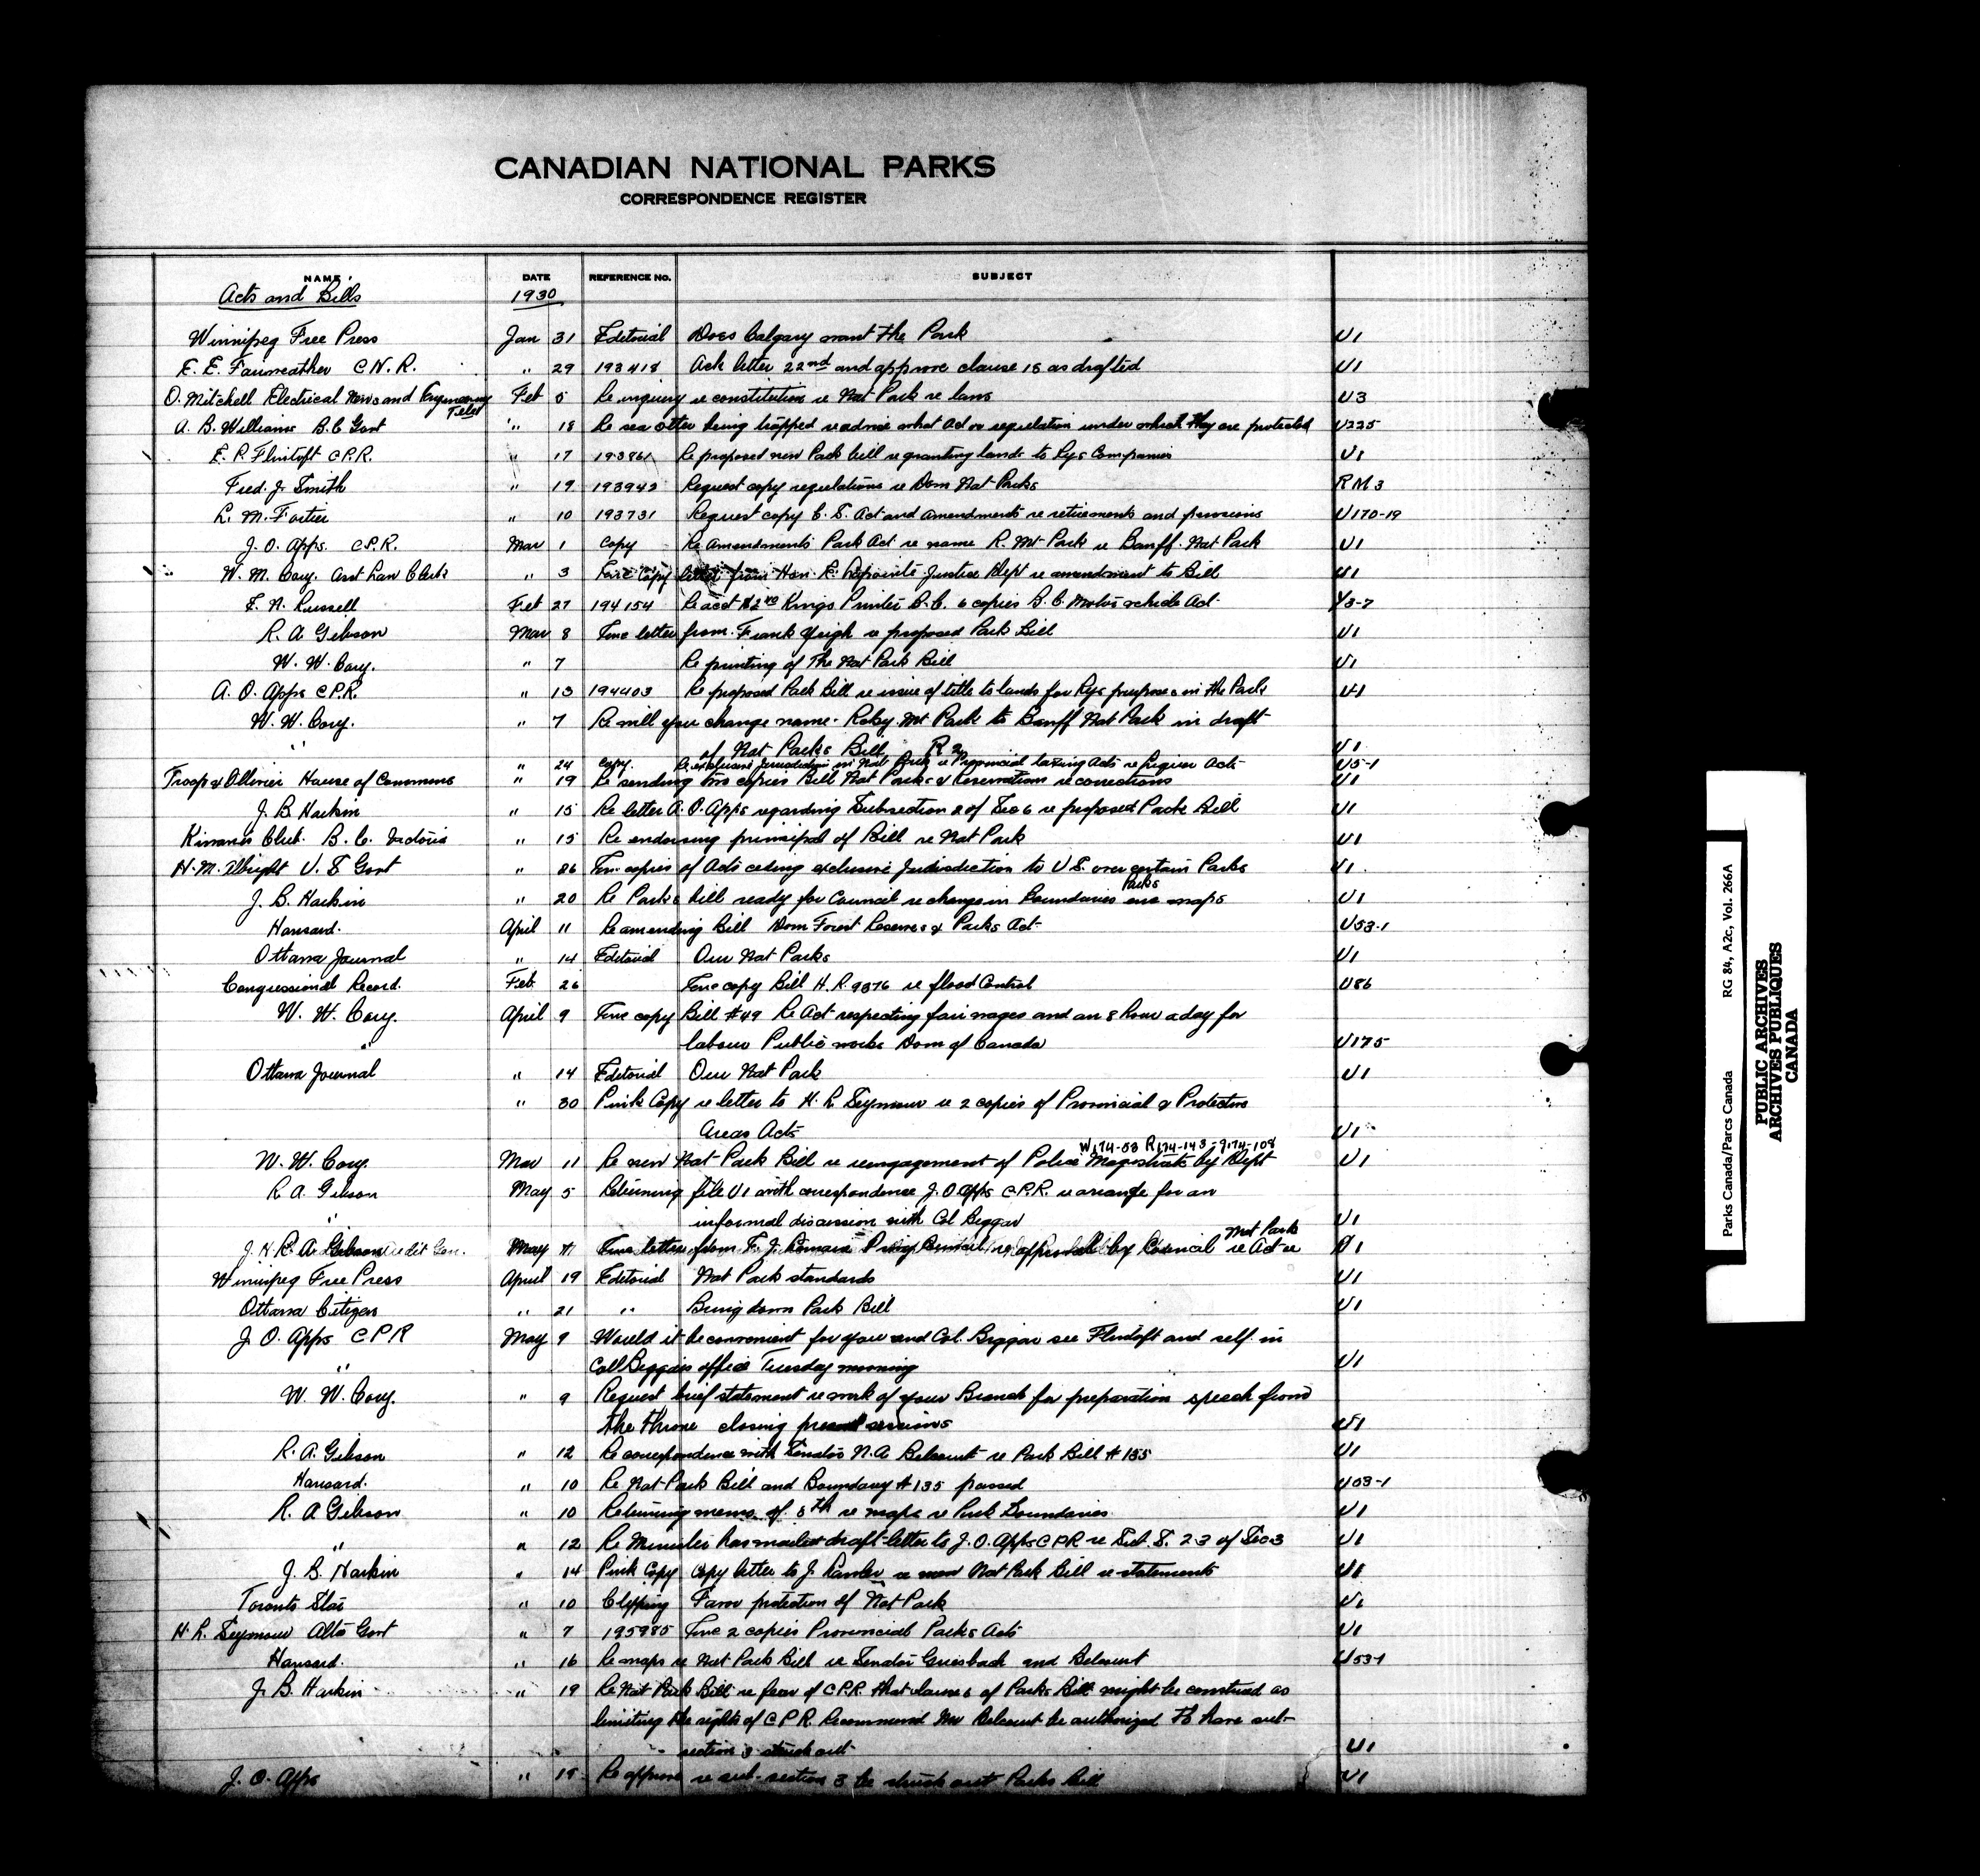 CANADIAN NATIONAL PARKS
CORRESPONDENCE REGISTER
NAME DATE REFERENCE NO. SUBJECT
Acts and Bills 1930
Winnipeg Free Press Jan 31 Editorial Does Calgary want the Park U1
E. E. Fairweather C.N.R. " 29 193418 Ack letter 22nd and approve clause 18 as drafted U1
O. Mitchell Electrical News and Engineering Feb 5 Re inquiry re constitution re Nat Park re laws U3
A. B. Williams B.C Govt " 18 Re sea otter being trapped re advise what Act or regulation under which they are protected U225
E. P. Flintoft C.P.R. " 17 193861 Re proposed new Park bill re granting lands to Rys Companies U1
Fred. J. Smith " 19 193943 Request copy regulations re Dom Nat Parks RM3
L. M. Fortier " 10 193731 Request copy C. S. Act and amendments re retirements and pensions U170-19
J. O. Apps. C.P.R. Mar 1 Copy Re Amendments Park Act re name R. Mt Park re Banff Nat Park U1
W. M. Cory. Asst Law Clerk " 3 Enc Copy letter from Hon. E. Lapointe Justice Dept re amendment to Bill U1
F. N. Russell Feb 27 194154 Re acct Kings Printer B.C. 6 copies B.C. Motor vehicle Act
R. A. Gibson Mar 8 Enc letter from Frank Yeigh re proposed Park Bill U1
W. W. Cory. " 7 Re printing of The Nat Park Bill U1
A. O. Apps C.P.R. " 13 194403 Re proposed Park Bill re issue of title to lands for Rys purposes in the Park U1
W. W. Cory. " 7 Re will you change name Rocky Mt Park to Banff Nat Park in draft
of Nat Parks Bill R2 U1
" " 24 Copy. Re exclusive Jurisdiction in Nat Parks re Provincial taxing Acts re Liquor Acts U5-1
Troop & Ollivier House of Commons " 19 Re sending two copies Bill Nat Parks & Reservation re corrections U1
J. B. Harkin " 15 Re letter A. O. Apps regarding Subsection 2 of Sec 6 re proposed Parks Bill U1
Kiwanis Club. B.C. Victoria " 15 Re endorsing principal of Bill re Nat Park U1
H. M. Albright U. S Govt " 26 Enc copies of Acts ceding exclusive Jurisdiction to U.S. over certain Parks U1.
Parks
J. B. Harkin " 20 Re Parks bill ready for Council re change in Boundaries maps U1
Hansard. April 11 Re amending Bill Dom Forest Reserves & Parks Act U53-1
Ottawa Journal " 14 Editorial Our Nat Parks U1
Congressional Record. Feb. 26 Enc copy Bill H.R. 9376 re flood Control U86
W. W. Cory. April 9 Enc copy Bill #49 Re Act respecting fair wages and an 8 hour a day for
" labour Public works Dom of Canada U175
Ottawa Journal " 14 Editorial Our Nat Park U1
" 30 Pink Copy re letter to H. L Seymour re 2 copies of Provincial & Protective
Areas Acts U1
W174-58 R174-143-J174-108
W. W. Cory. Mar 11 Re new Nat Park Bill re reengagement of Police Magistrate by Dept U1
R. A. Gibson May 5 Returning file U1 with correspondence J. O. Apps C.P.R. re arrange for an
" informal discussion with Col Biggar U1
Nat Park
R. A. Gibson May Enc letter from E. J. Lemaire Privy Council re approval by Council re Act re
Winnipeg Free Press April 19 Editorial Nat Park standards U1
Ottawa Citizen " 21 " Bring down Park Bill U1
J. O. Apps C P R May 9 Would it be convenient for you and Col. Biggar see Flintoft and self in
" Col Biggars office Tuesday morning U1
W. W. Cory. " 9 Request brief statement re work of your Branch for preparation speech from
the Throne closing present sessions U1
R. A. Gibson " 12 Re correspondence with Senator N. A Belcourt re Park Bill #135 U1
Hansard. " 10 Re Nat Park Bill and Boundary #135 passed U53-1
R. A Gibson " 10 Returning memo of 8th re maps re Park Boundaries U1
" " 12 Re Minister has mailed draft letter to J. O. Apps C P R re Sub. S. 2-3 of Sec 3 U1
J. B. Harkin " 14 Pink Copy Copy letter to J. re new Nat Park Bill re statements U1
Toronto Star " 10 Clipping Favor protection of Nat Park U1
H. L. Seymour Alta Govt " 7 195985 Enc 2 copies Provincial Parks Acts U1
Hansard. " 16 Re maps re Nat Park Bill re Senator Griesbach and Belcourt U53-1
J. B. Harkin " 19 Re Nat Park Bill re fear of C.P.R. that clause 6 of Parks Bill might be construed as
limiting the rights of C P R. Recommend Mr Belcourt be authorized to have sub-
section 3 struck out U1
J. O. Apps " 19 Re approve re sub-section 3 be struck out Parks Bill U1
Parks Canada/Parcs Canada RG 84, A2c, Vol. 266A
PUBLIC ARCHIVES
ARCHIVES PUBLIQUES
CANADA